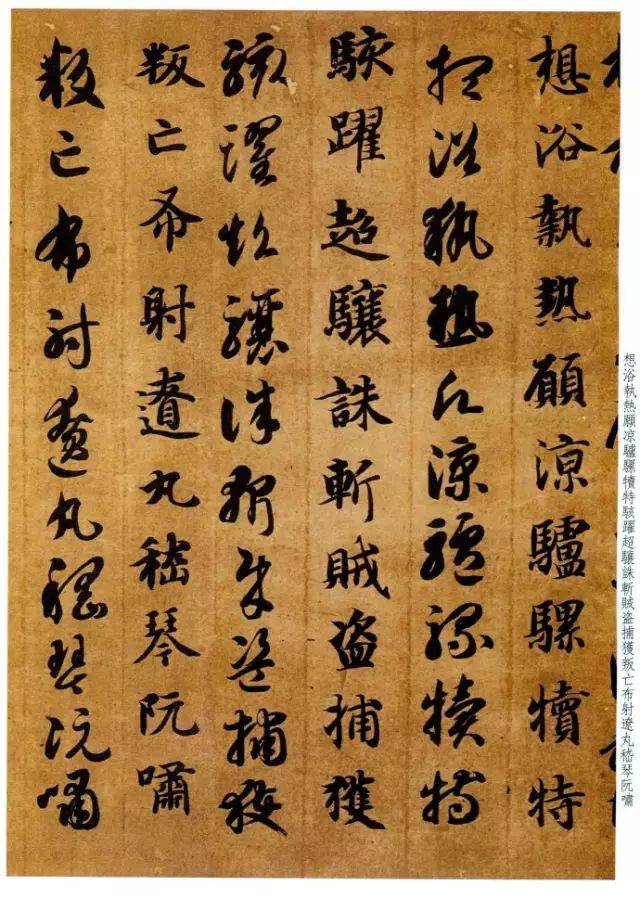 想浴執熱願涼驢騾犢特
想浴執熱願涼驢騾犢特
駭躍超驤誅斬賊盜捕獲
駭躍超驤誅斬賊盜捕獲
叛亡布射遼丸嵇琴阮嘯
叛亡布射遼丸嵇琴阮嘯
想浴執熱願凉驢騾犢特駭躍超驤誅斬賊盗捕獲叛亡布射遼丸嵇琴阮嘯